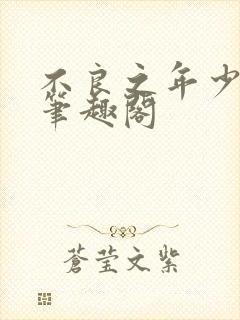 不良之年少
筆趣閣
蒼莹文紫